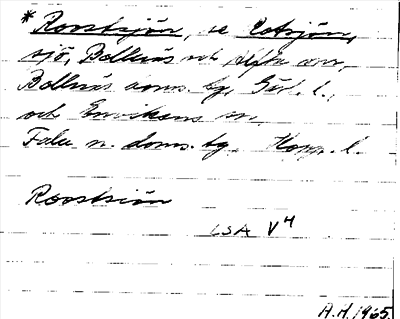 *Roostsjön, se Rotsjön,
sjö, Bollnäs och Alfta snr,
Bollnäs doms. tg, Gävl. l.,
och Envikens sn,
Falu n. doms. tg, Kopp. l.
Roostsiön
LSA V4
A.H. 1965.